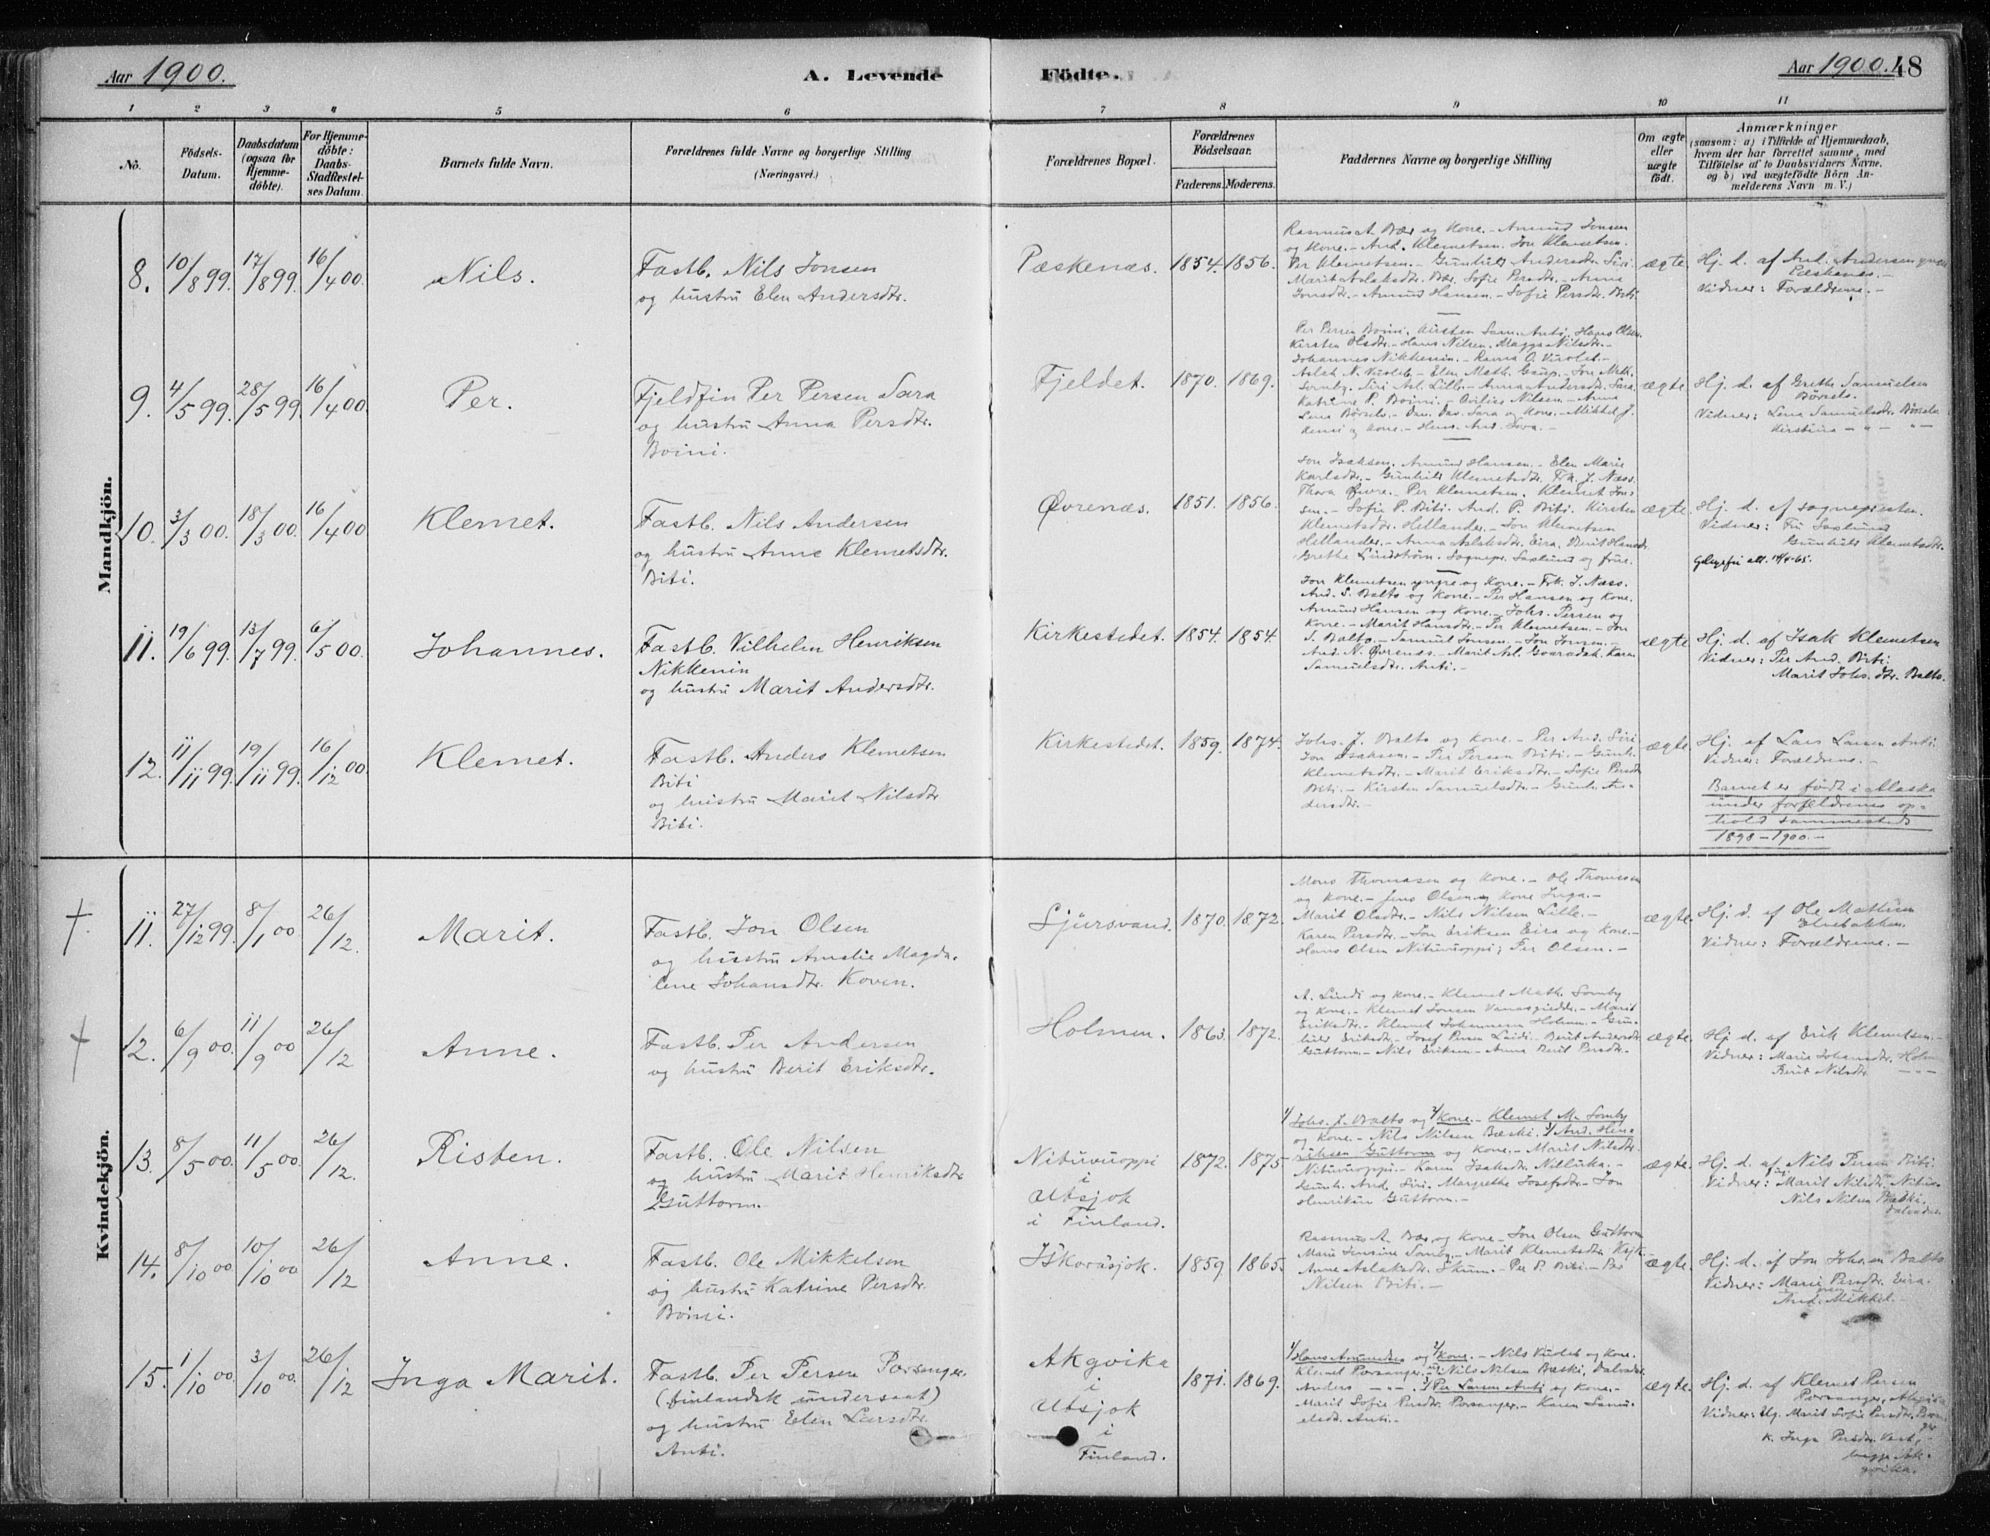 Aar 1900.
A. Levende Födte.
Aar 1900. 48
1 2 3 4 5 6 7 8 9 10 11
No.
Födsels-Datum.
Daabsdatum (ogsaa for Hjemme-döbte).
For Hjemme-döbte: Daabs-Stadfæstel-ses Datum.
Barnets fulde Navn.
Forældrenes fulde Navne og borgerlige Stilling
(Næringsvei.)
Forældrenes Bopæl.
Forældrenes Födselsaar.
Faderens. Moderens.
Faddernes Navne og borgerlige Stilling
Om ægte eller uægte födt.
Anmærkninger
(saasom: a) i Tilfælde af Hjemmedaab, hvem der har forrettet samme, med Tilföielse af to Daabsvidners Navne, og b) ved uægtefödte Börn An-melderens Navn m. V.)
Mandkjön.
8. 10/8 99. 17/8 99. 16/4 00. Nils.
Fastb. Nils Jonsen
og hustru Elen Andersdtr.
Pæskenæs. 1854. 1856.
Rasmus A. Bær og kone. - Amund Jonsen
og kone. - And. Klemetsen. Jon Klemetsen.
Per Klemetsen. - Gunhild Andersdtr. Siri
Marit Aslaksdtr. Bær, Sofie Persdtr. - Anna
Jonsdtr. - Amund Hansen. - Sofie Persdtr. Biti
ægte.
Hj. d. af And. Andersen
Pæskenæs. -
Vidner: Forældrene. -
9. 4/5 99. 28/5 99. 16/4 00. Per.
Fjeldfin Per Persen Sara
og hustru Anna Persdtr.
Boini.
Fjeldet. 1870. 1869.
Per Persen Boini. Kirsten Sam. Anti, Hans Olsen.
Kirsten Olsdtr. - Hans Nilsen. Magga Nilsdtr. -
Johannes Nikkenin. -
Aslak N. Vuoleb. - Elen Math. Gaup. - Jon Mik.
Somby. Siri Asl. Lille. - Anna Andersdtr. Sara
Katrine P. Boini. - Nilsen. - Anna
Lena Börsele. - Sara og kone. - Mikkel J.
og kone. - And. Sara. -
ægte.
Hj. d. af Grethe Samuelsen
Börsele.
Vidner: Lena Samuelsdtr. Börsele
Kirstina - " - " -
10. 3/3 00. 18/3 00. 16/4 00. Klemet.
Fastb. Nils Andersen
og hustru Anne Klemetsdtr.
Biti.
Øvrenæs. 1851. 1856.
Jon Isaksen. Amund Hansen. - Elen Marie
Karlsdtr. - Gunhild Klemetsdtr. Frk. J. Næss.
Thora Øwre. - Per Klemetsen. Klemet Jon-
sen. - Sofie P. Biti. And. P. Biti. Kirsten
Klemetsdtr. Hellander. - Jon Klemetsen
Hellander. - Anna Aslaksdtr. Eira. Berit Hansdtr.
Grethe Lindström. Sognepr. Saxlund og frue.
ægte.
Hj. d. af sognepresten.
Vidner: Fru Saxlund
Gunhild Klemetsdtr.
11. 19/6 99. 13/7 99. 6/5 00. Johannes.
Fastb. Vilhelm Henriksen
Nikkenin
og hustru Marit Andersdtr.
Kirkestedet. 1854. 1854.
Jon Klemetsen yngre og kone. - Frk. J. Næss.
And. S. Balto og kone. - Per Hansen og kone.
Amund Hansen og kone. - Johs. Persen og
kone. - Marit Hansdtr. - Per Klemetsen. - Jon
S. Balto. - Samuel Jonsen. - Jon Jonsen. -
And. N. Øvrenæs. - Marit Asl. Karen
Samuelsdtr. Anti. -
ægte.
Hj. d. af Isak Klemetsen
Vidner: Per And. Biti.
Marit Johs. dtr. Balto.
12. 11/11 99. 19/11 99. 16/12 00. Klemet.
Fastb. Anders Klemetsen
Biti
og hustru Marit Nilsdtr
Biti.
Kirkestedet. 1859. 1874.
Johs. J. Balto og kone. - Per And. Siri.
Jon Isaksen. - Per Persen Biti. - Gunh.
Klemetsdtr. - Marit Eriksdtr. - Sofie Persdtr
Biti. - Kirsten Samuelsdtr. - Gunh. An-
dersdtr. -
ægte.
Hj. af Lars Larsen Anti.
Vidner: Forældrene. -
Barnet er födt i Alaska
under forældrenes op-
hold sammesteds
1898 - 1900. -
Kvindekjön.
† 11. 27/12 99. 8/1 00. 26/12. Marit.
Fastb. Jon Olsen
og hustru Amalie Magda-
lene Johansdtr. Koven.
Ljürsvand. 1870. 1872.
Mons Thomasen og kone. - Ole Thomesen
og kone. - Jens Olsen og kone Inga. -
Marit Olsdtr. - Nils Nilsen Lille. -
Karen Persdtr. - Jon Eriksen Eira og kone. -
Hans Olsen Nituvuoppi; Per Olsen. -
ægte.
Hj. d. af Ole Mathisen
Elvebakken.
Vidner: Forældrene. -
† 12. 6/9 00. 11/9 00. 26/12. Anne.
Fastb. Per Andersen
og hustru Berit Eriksdtr.
Holmen. 1863. 1872.
A. Lindi og kone. - Klemet Math. Somby
og kone. - Klemet Jonsen - Marit
Eriksdtr. - Klemet Johannesen Holmen. - Gun-
hild Eriksdtr. - Josef Persen Laiti. - Berit Andersdtr.
Guttorm. - Nils Eriksen. - Anna Berit Persdtr. -
ægte.
Hj. d. af Erik Klemetsen. -
Vidner: Marie Johansdtr. Holm.
Berit Nilsdtr. - " -
13. 8/5 00. 11/5 00. 26/12. Risten.
Fastb. Ole Nilsen
og hustru Marit Henriksdtr
Guttorm.
Nituvuoppi
i
Utsjok
i Finland.
1872. 1875.
1/ Johs. J. Balto og 2/ kone. - Klemet M. Somby
og kone. - Nils Nilsen Bæski. 3/ And. Hen-
riksen Guttorm og kone. - Marit Nilsdtr.
Nituvuoppi. - Karen Isaksdtr. Nilluka. -
Gunh. And. Siri. - Margrethe Josefsdtr. - Jon
Henriksen Guttorm. -
ægte.
Hj. d. af Nils Persen Biti.
Vidner: Marit Nilsdtr. Nitu-
Nils Nilsen Bæski.
14. 8/10 00. 10/10 00. 26/12. Anne.
Fastb. Ole Mikkelsen
og hustru Katrine Persdtr.
Boini.
Iskorasjok. 1859. 1865.
Rasmus A. Bær og kone. - Jon Olsen Guttorm
Marie Jensine Somby. - Marit Klemetsdtr.
Anne Aslaksdtr. Skum. - Per P. Biti. - Per
Nilsen Biti. -
ægte.
Hj. d. af Jon Johsen Balto
Vidner: Marie Persdtr. Eira.
And. Mikkel. -
15. 1/10 00. 3/10 00. 26/12. Inga Marit.
Fastb. Per Persen Porsanger.
(finlandsk undersaat)
og hustru Elen Larsdtr.
Anti.
Akgvika
i
Utsjok
i
Finland.
1871. 1869.
1/ Hans Amundsen og 2/ kone. - Nils Vuoleb og kone.
Klemet Porsanger. - Nils Nilsen Bæski, Dalvadas
Anders - " - 3/ Per Larsen Anti og kone. -
Marit Sofie Persdtr. Porsanger. - Karen Samu-
elsdtr. Anti. -
ægte.
Hj. d. af Klemet Persen
Porsanger,
Vidner: Ug. Marit Sofie Persdtr.
K. Inga Persdtr.